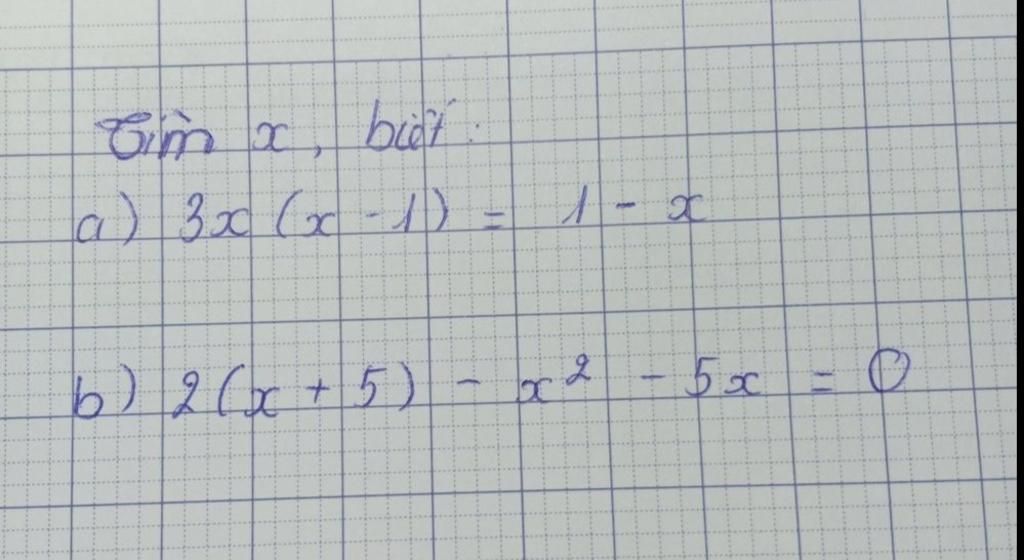 Tìm x, biết:
a) 3x(x - 1) = 1 - x
b) 2(x + 5) - x² - 5x = 0